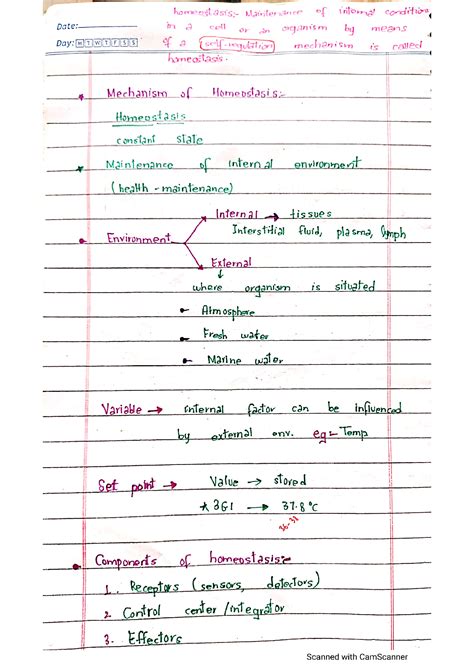 homeostasis:- Maintenance of internal conditions
Date:
in a cell or an organism by means
Day: M T W T F S S
of a self-regulation mechanism is called
homeostasis.
Mechanism of Homeostasis:-
Homeostasis
constant state
Maintenance of internal environment
(health - maintenance)
Internal → tissues
Interstitial fluid, plasma, lymph
Environment
External
↓
where organism is situated
Atmosphere
Fresh water
Marine water
Variable → internal factor can be influenced
by external env. eg = Temp
Set point → Value → stored
→ 37.8 °C
Components of homeostasis:-
1. Receptors (sensors, detectors)
2. Control center / integrator
3. Effectors
Scanned with CamScanner